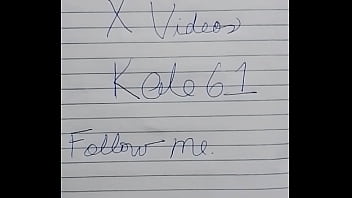 X Videos
Kale 61
Follow me.